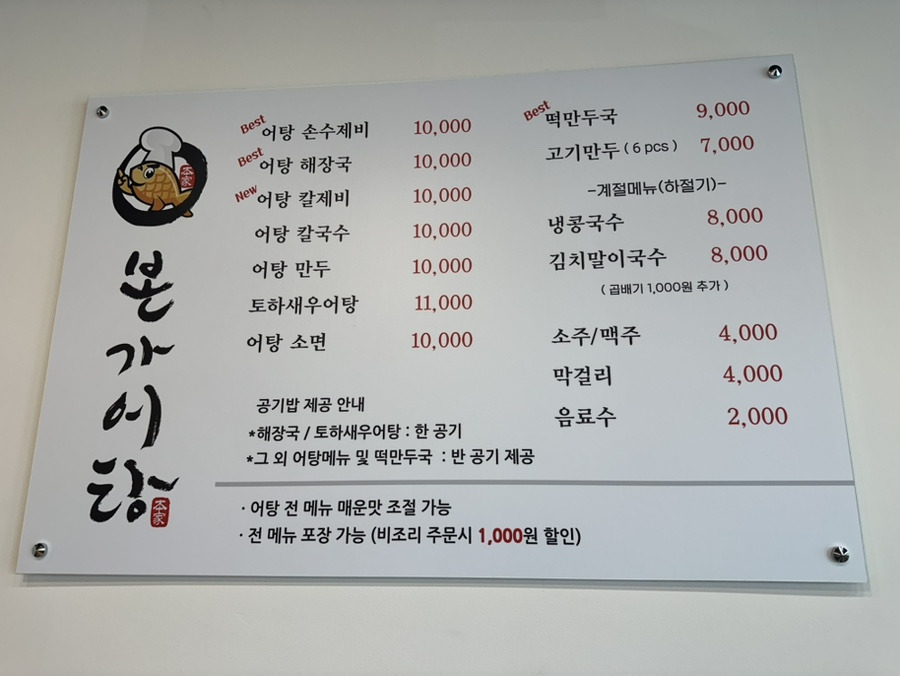 본가어탕
本家
Best 어탕 손수제비 10,000
Best 어탕 해장국 10,000
New 어탕 칼제비 10,000
어탕 칼국수 10,000
어탕 만두 10,000
토하새우어탕 11,000
어탕 소면 10,000
공기밥 제공 안내
*해장국 / 토하새우어탕 : 한 공기
*그 외 어탕메뉴 및 떡만두국 : 반 공기 제공
Best 떡만두국 9,000
고기만두 ( 6 pcs ) 7,000
-계절메뉴(하절기)-
냉콩국수 8,000
김치말이국수 8,000
( 곱배기 1,000원 추가 )
소주/맥주 4,000
막걸리 4,000
음료수 2,000
· 어탕 전 메뉴 매운맛 조절 가능
· 전 메뉴 포장 가능 (비조리 주문시 1,000원 할인)